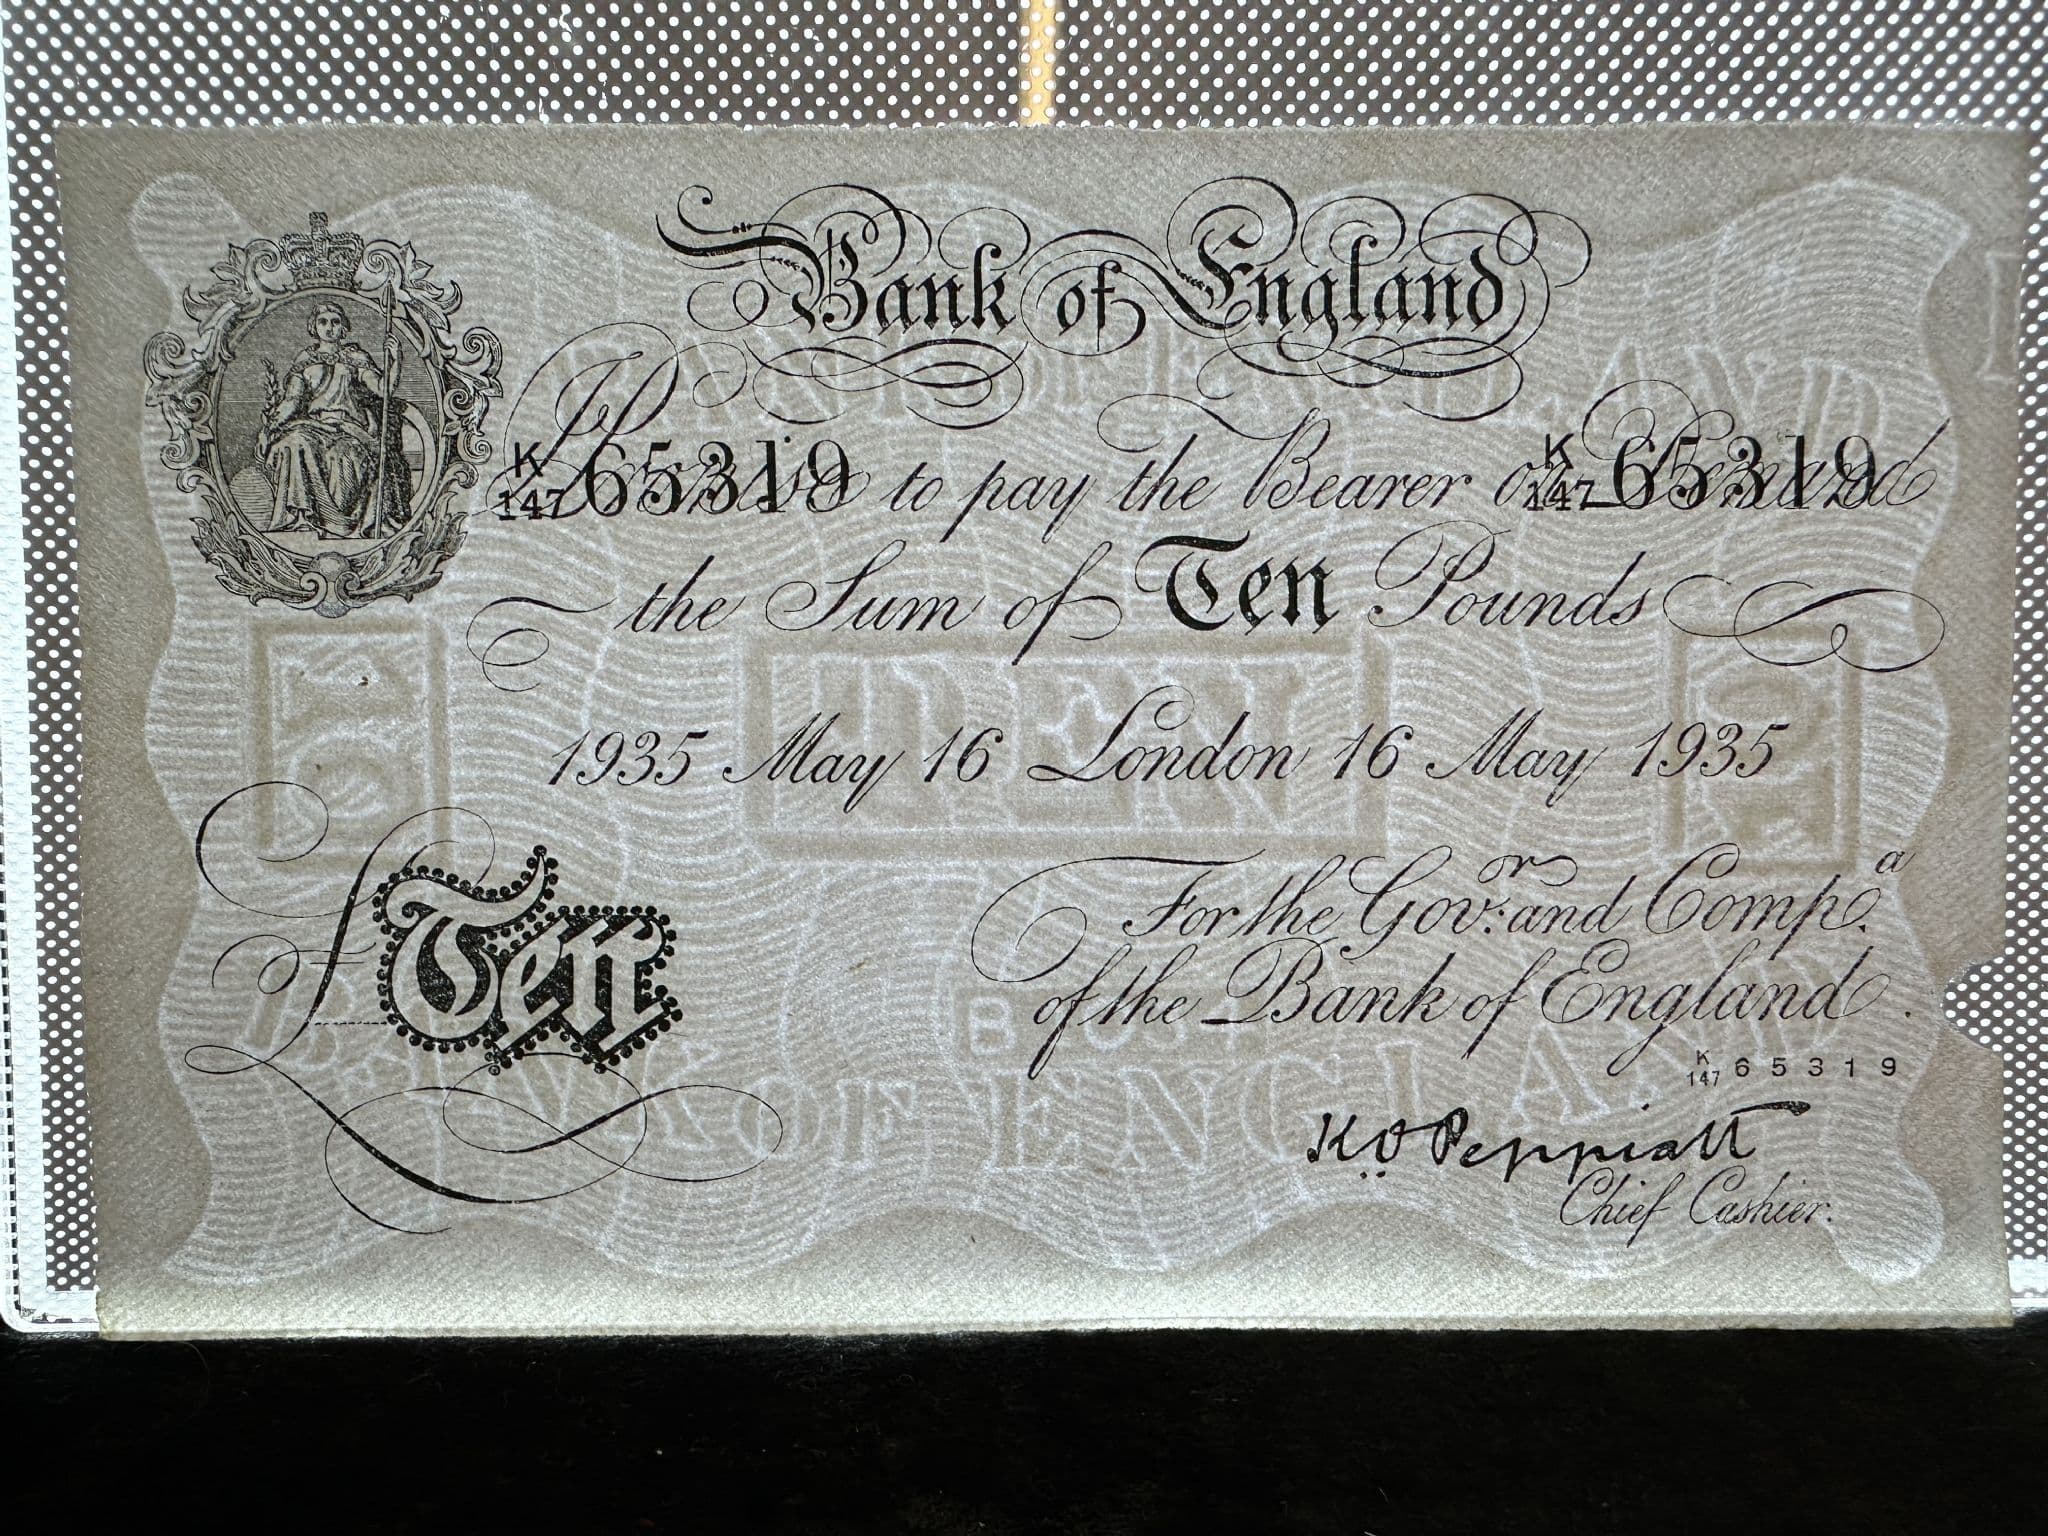 Bank of England
K 147 65319 K 147 65319
Promise to pay the Bearer on Demand
the Sum of Ten Pounds
BANK OF ENGLAND
TEN
1935 May 16 London 16 May 1935
For the Gov:or and Comp.a
of the Bank of England.
£Ten
K 147 65319
BANK OF ENGLAND
K.O Peppiatt
Chief Cashier.